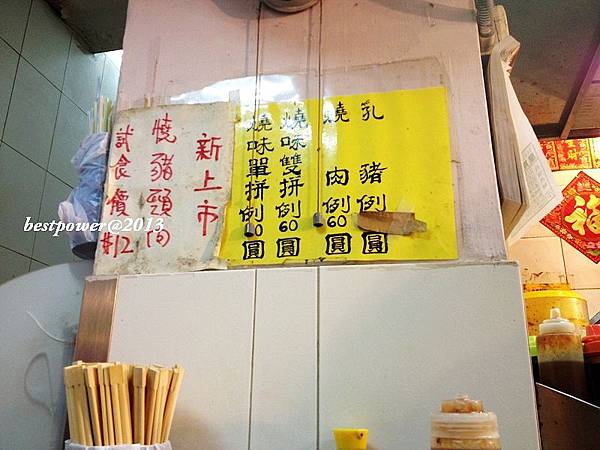 乳豬例圓
燒肉例60圓
燒味雙拼例60圓
燒味單拼例0圓
新上市
燒豬頸肉
試食價#12
bestpower@2013
福